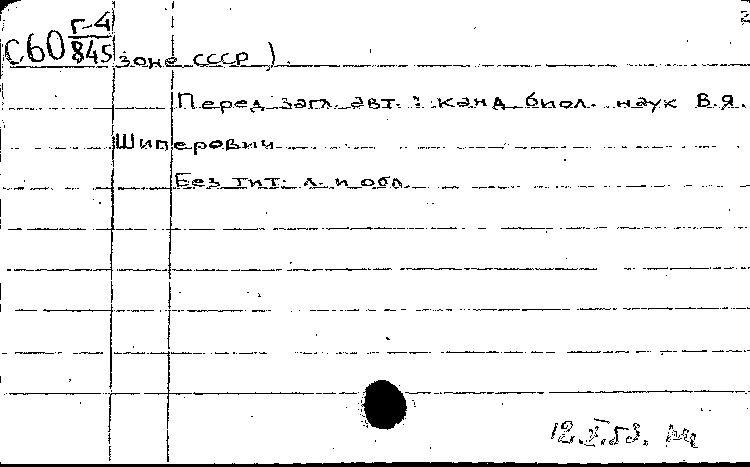 2
С60 Г-4/845 зоне СССР).
Перед загл. авт.: канд. биол. наук В.Я.
Шиперович
Без тит. л. и обл.
12.X.53.